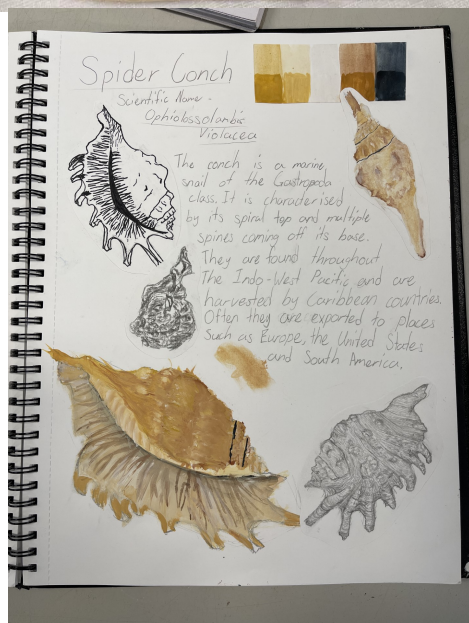 Spider Conch
Scientific Name -
Ophiolossolambis
Violacea
The conch is a marine
snail of the Gastropoda
class. It is characterised
by its spiral top and multiple
spines coming off its base.
They are found throughout
The Indo-West Pacific and are
harvested by Caribbean countries.
Often they are exported to places
Such as Europe, the United States
and South America.